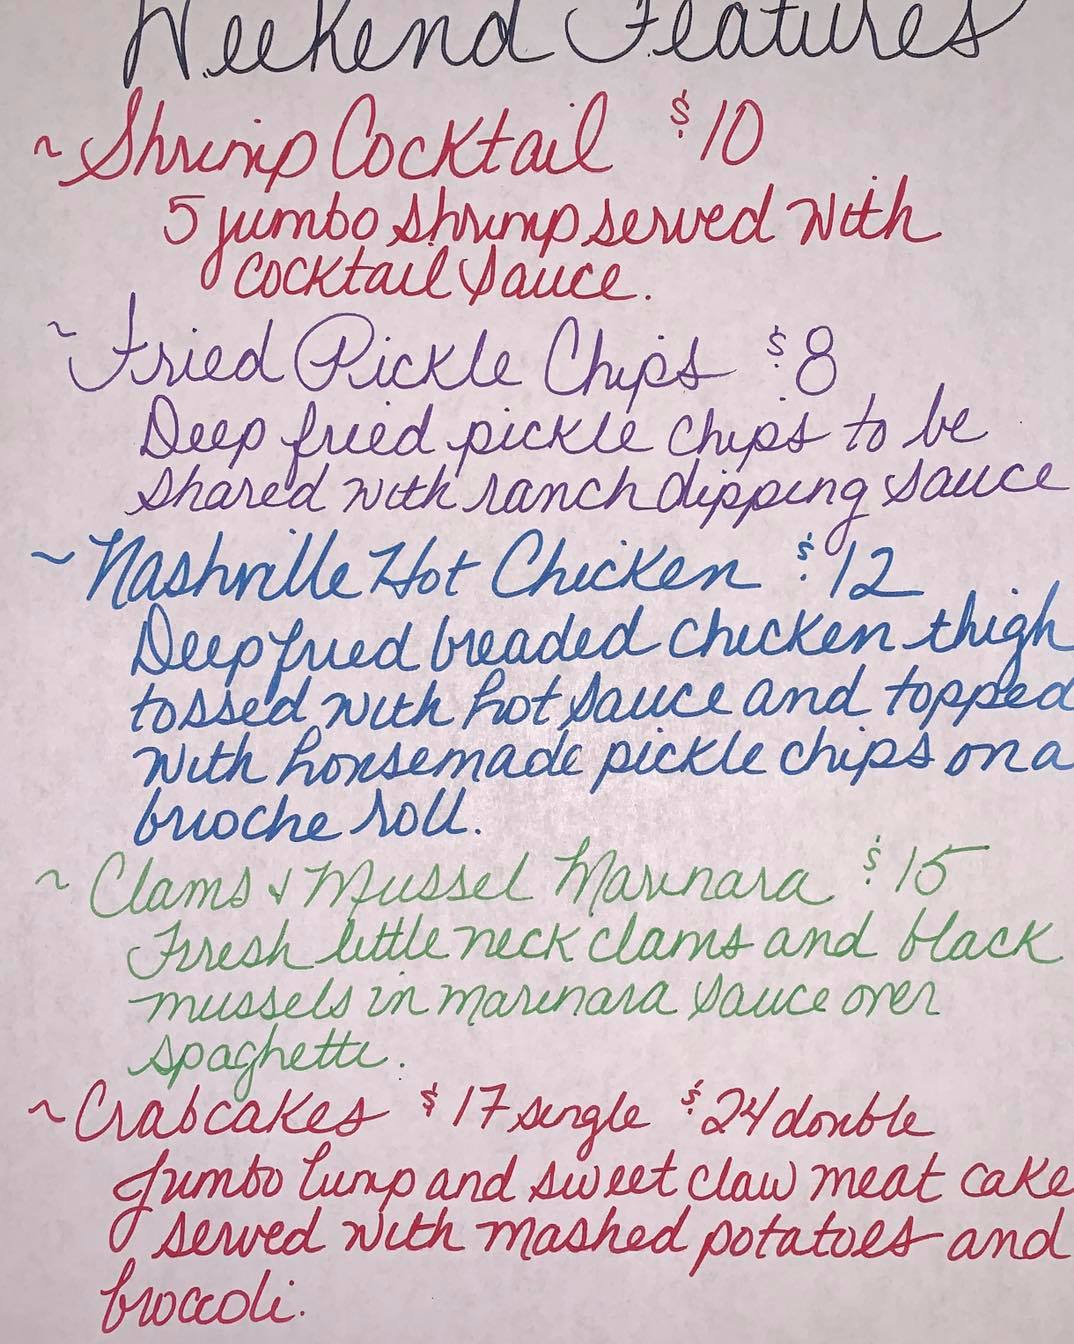 Weekend Features
~ Shrimp Cocktail $10
5 jumbo shrimp served with
cocktail sauce.
~ Fried Pickle Chips $8
Deep fried pickle chips to be
shared with ranch dipping sauce
~ Nashville Hot Chicken $12
Deep fried breaded chicken thigh
tossed with hot sauce and topped
with housemade pickle chips on a
brioche roll.
~ Clams & Mussel Marinara $15
Fresh little neck clams and black
mussels in marinara sauce over
spaghetti.
~ Crabcakes $17 single $24 double
Jumbo lump and sweet claw meat cake
served with mashed potatoes and
broccoli.